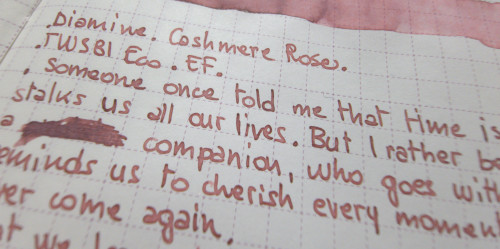 .Diamine. Cashmere Rose.
.TWSBI Eco. EF.
. Someone once told me that time is
stalks us all our lives. But I rather
a companion, who goes
us to cherish every
come again.